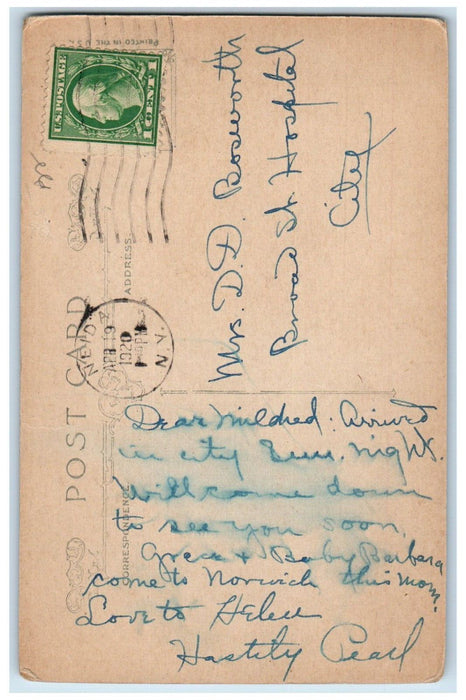 PRINTED IN THE U.S.A.
U.S. POSTAGE
1 CENT 1
POST CARD
ADDRESS
CORRESPONDENCE
APR 19
1920
N.Y.
Mrs. D. D. Bosworth
Broad St Hospital
City
Dear Mildred: Arrived
in city Sun. night.
Will come down
to see you soon.
Grace + Baby Barbara
come to Norwich this morn.
Love to Helen
Hastily Pearl